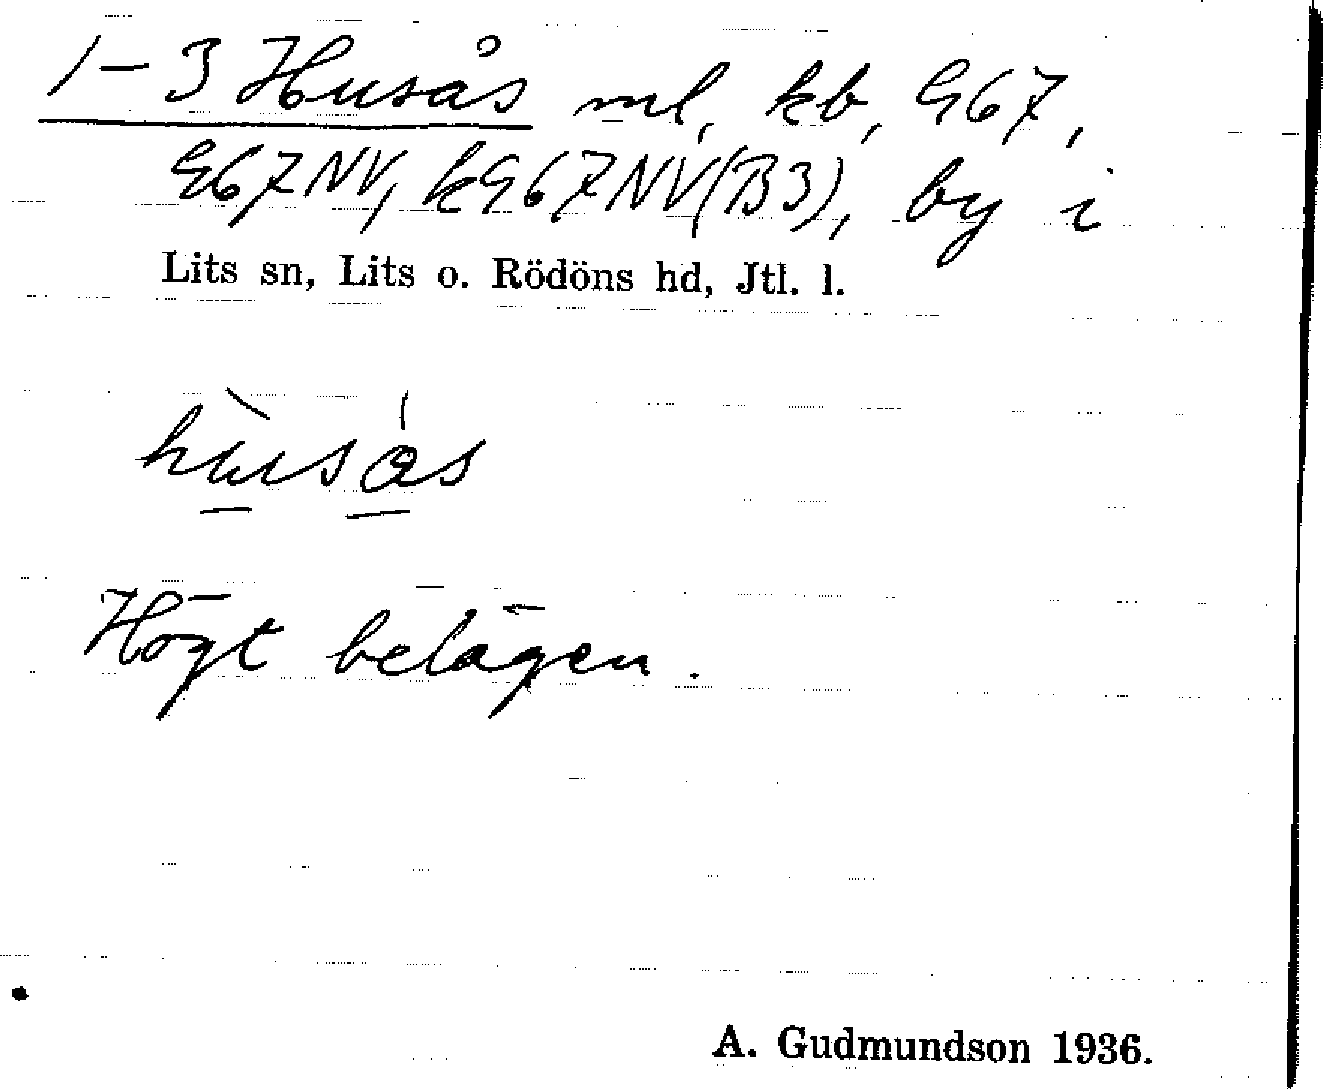 1–3 Husås ml, kb, G67,
G67NV, kG67NV(B3), by i
Lits sn, Lits o. Rödöns hd, Jtl. l.
hùsás
Högt belägen.
A. Gudmundson 1936.